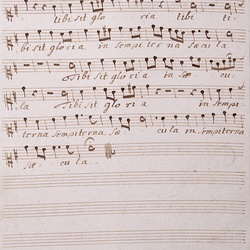 tibi sit glo ria tibi ti
bi sit gloria in sempiterna sæcula
tibi sit gloria in sæ cu
la tibi sit glo ria in sem
piterna sempiterna, sæ cula in sempiterna
sæ cula.